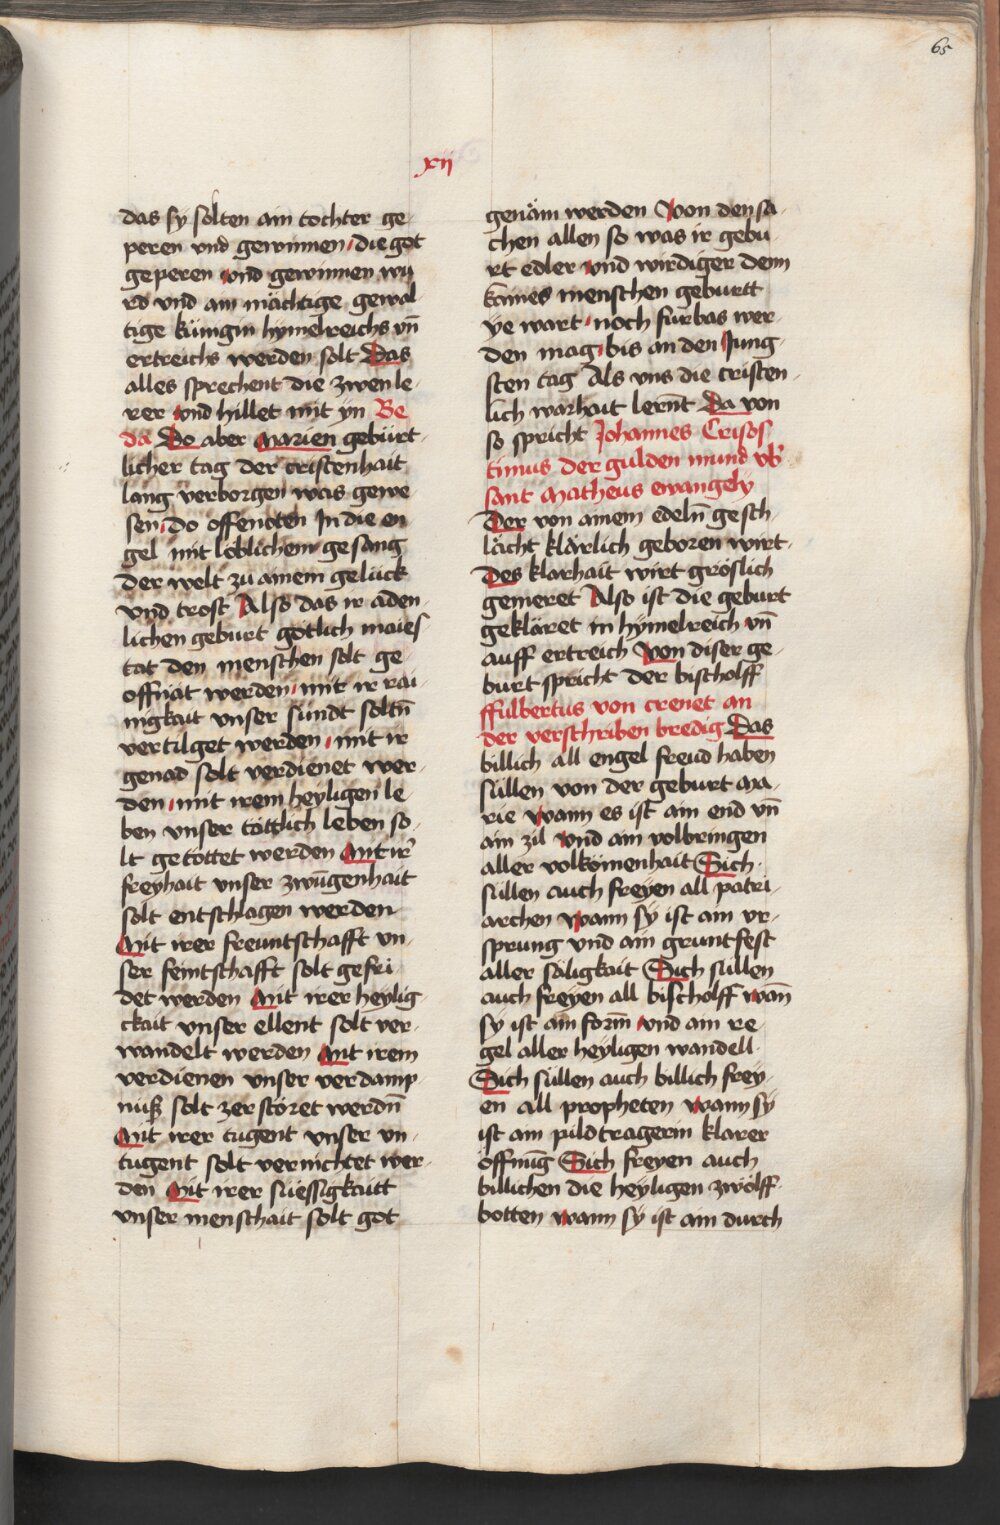 65
xij
das sÿ solten ain tochter ge
peren vnd gewinnen, die got
geperen vnd gewinnen wu
rd vnd ain mächtige gewal
tige künigin hymelreichs vn̄
ertreichs werden solt Das
alles sprechent die zwen le
rer vnd hillet mit yn Be
da Do aber Marien gebürt
licher tag der cristenhait
lang verborgen was gewe
sen, do offenoten In die en
gel mit löblichem gesang
der welt zu ainem gelück
vnd trost Also das ir aden
lichen geburt götlich maies
tat den menschen solt ge
offnät werden, mit ir rai
nigkait vnser sündt soltn̄
vertilget werden, mit ir
genad solt verdienet wer
den, mit irem heyligen le
ben vnser töttlich leben so
lt getöttet werden Mit ir̉
freyhait vnser zwūgenhait
solt entschlagen werden
Mit irer freuntschafft vn
ser feintschafft solt gefri
det werden Mit irer heylig
ckait vnser ellent solt ver
wandelt werden Mit irem
verdienen vnser verdamp
nuß solt zerstöret werdn̄
Mit irer tugent vnser vn
tugent solt vernichtet wer
den Mit irer süessigkaitt
vnser menschait solt got
genäm werden Von den sa
chen allen so was ir gebu
rt edler vnd wirdiger denn
kaines menschen geburtt
ye wart, noch fürbas wer
den mag, bis an den Jung
sten tag Als vns die cristen
lich warhait lernt̄ Da von
so spricht Johannes Crisos
timus der gulden mund vb̉
sant Matheus ewangely
Der von ainem edeln̄ gesch
lächt klärlich geboren wirt
Des klarhait wirt gröslich
gemeret Also ist die geburt
gekläret in hÿmelreich vn̄
auff ertreich Von diser ge
burt spricht der bischolff
ffulbertus von crenet an
der verschriben bredig Das
billich all engel freud haben
süllen von der geburt Ma
rie wann es ist ain end vn̄
ain zil vnd ain volbringen
aller volkomenhait Sich
süllen auch freyen all patri
archen wann sÿ ist am vr
sprung vnd ain gruntfest
aller säligkait Sich süllen
auch freyen all bischolff wan̄
sÿ ist ain form̄ vnd ain re
gel aller heyligen wandell
Sich süllen auch billich frey
en all propheten wann sÿ
ist ain pildtragerin klarer
öffnūg Sich freyen auch
billichen die heyligen zwölff
botten wann sÿ ist ain durch